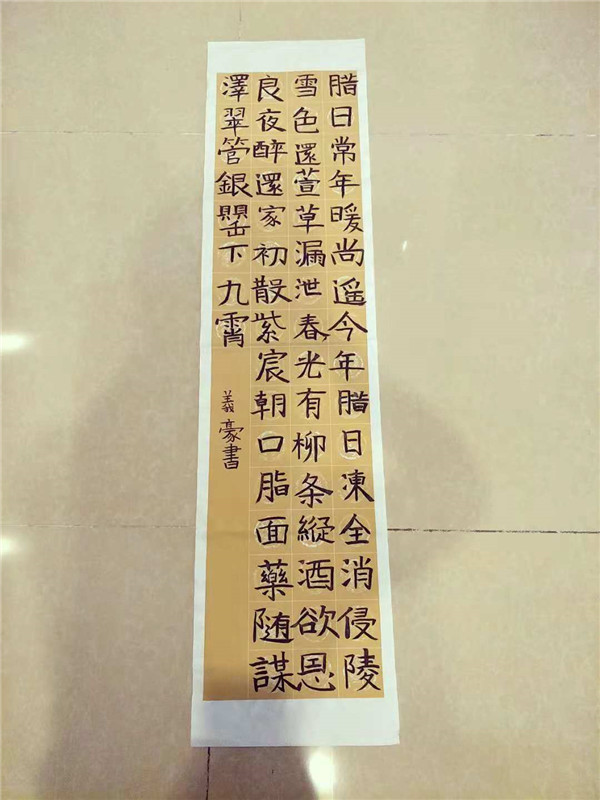 腊日常年暖尚遥今年腊日凍全消侵陵
雪色還萱草漏泄春光有柳条縱酒欲恩
良夜醉還家初散紫宸朝口脂面藥随謀
澤翠管銀罌下九霄
義豪書